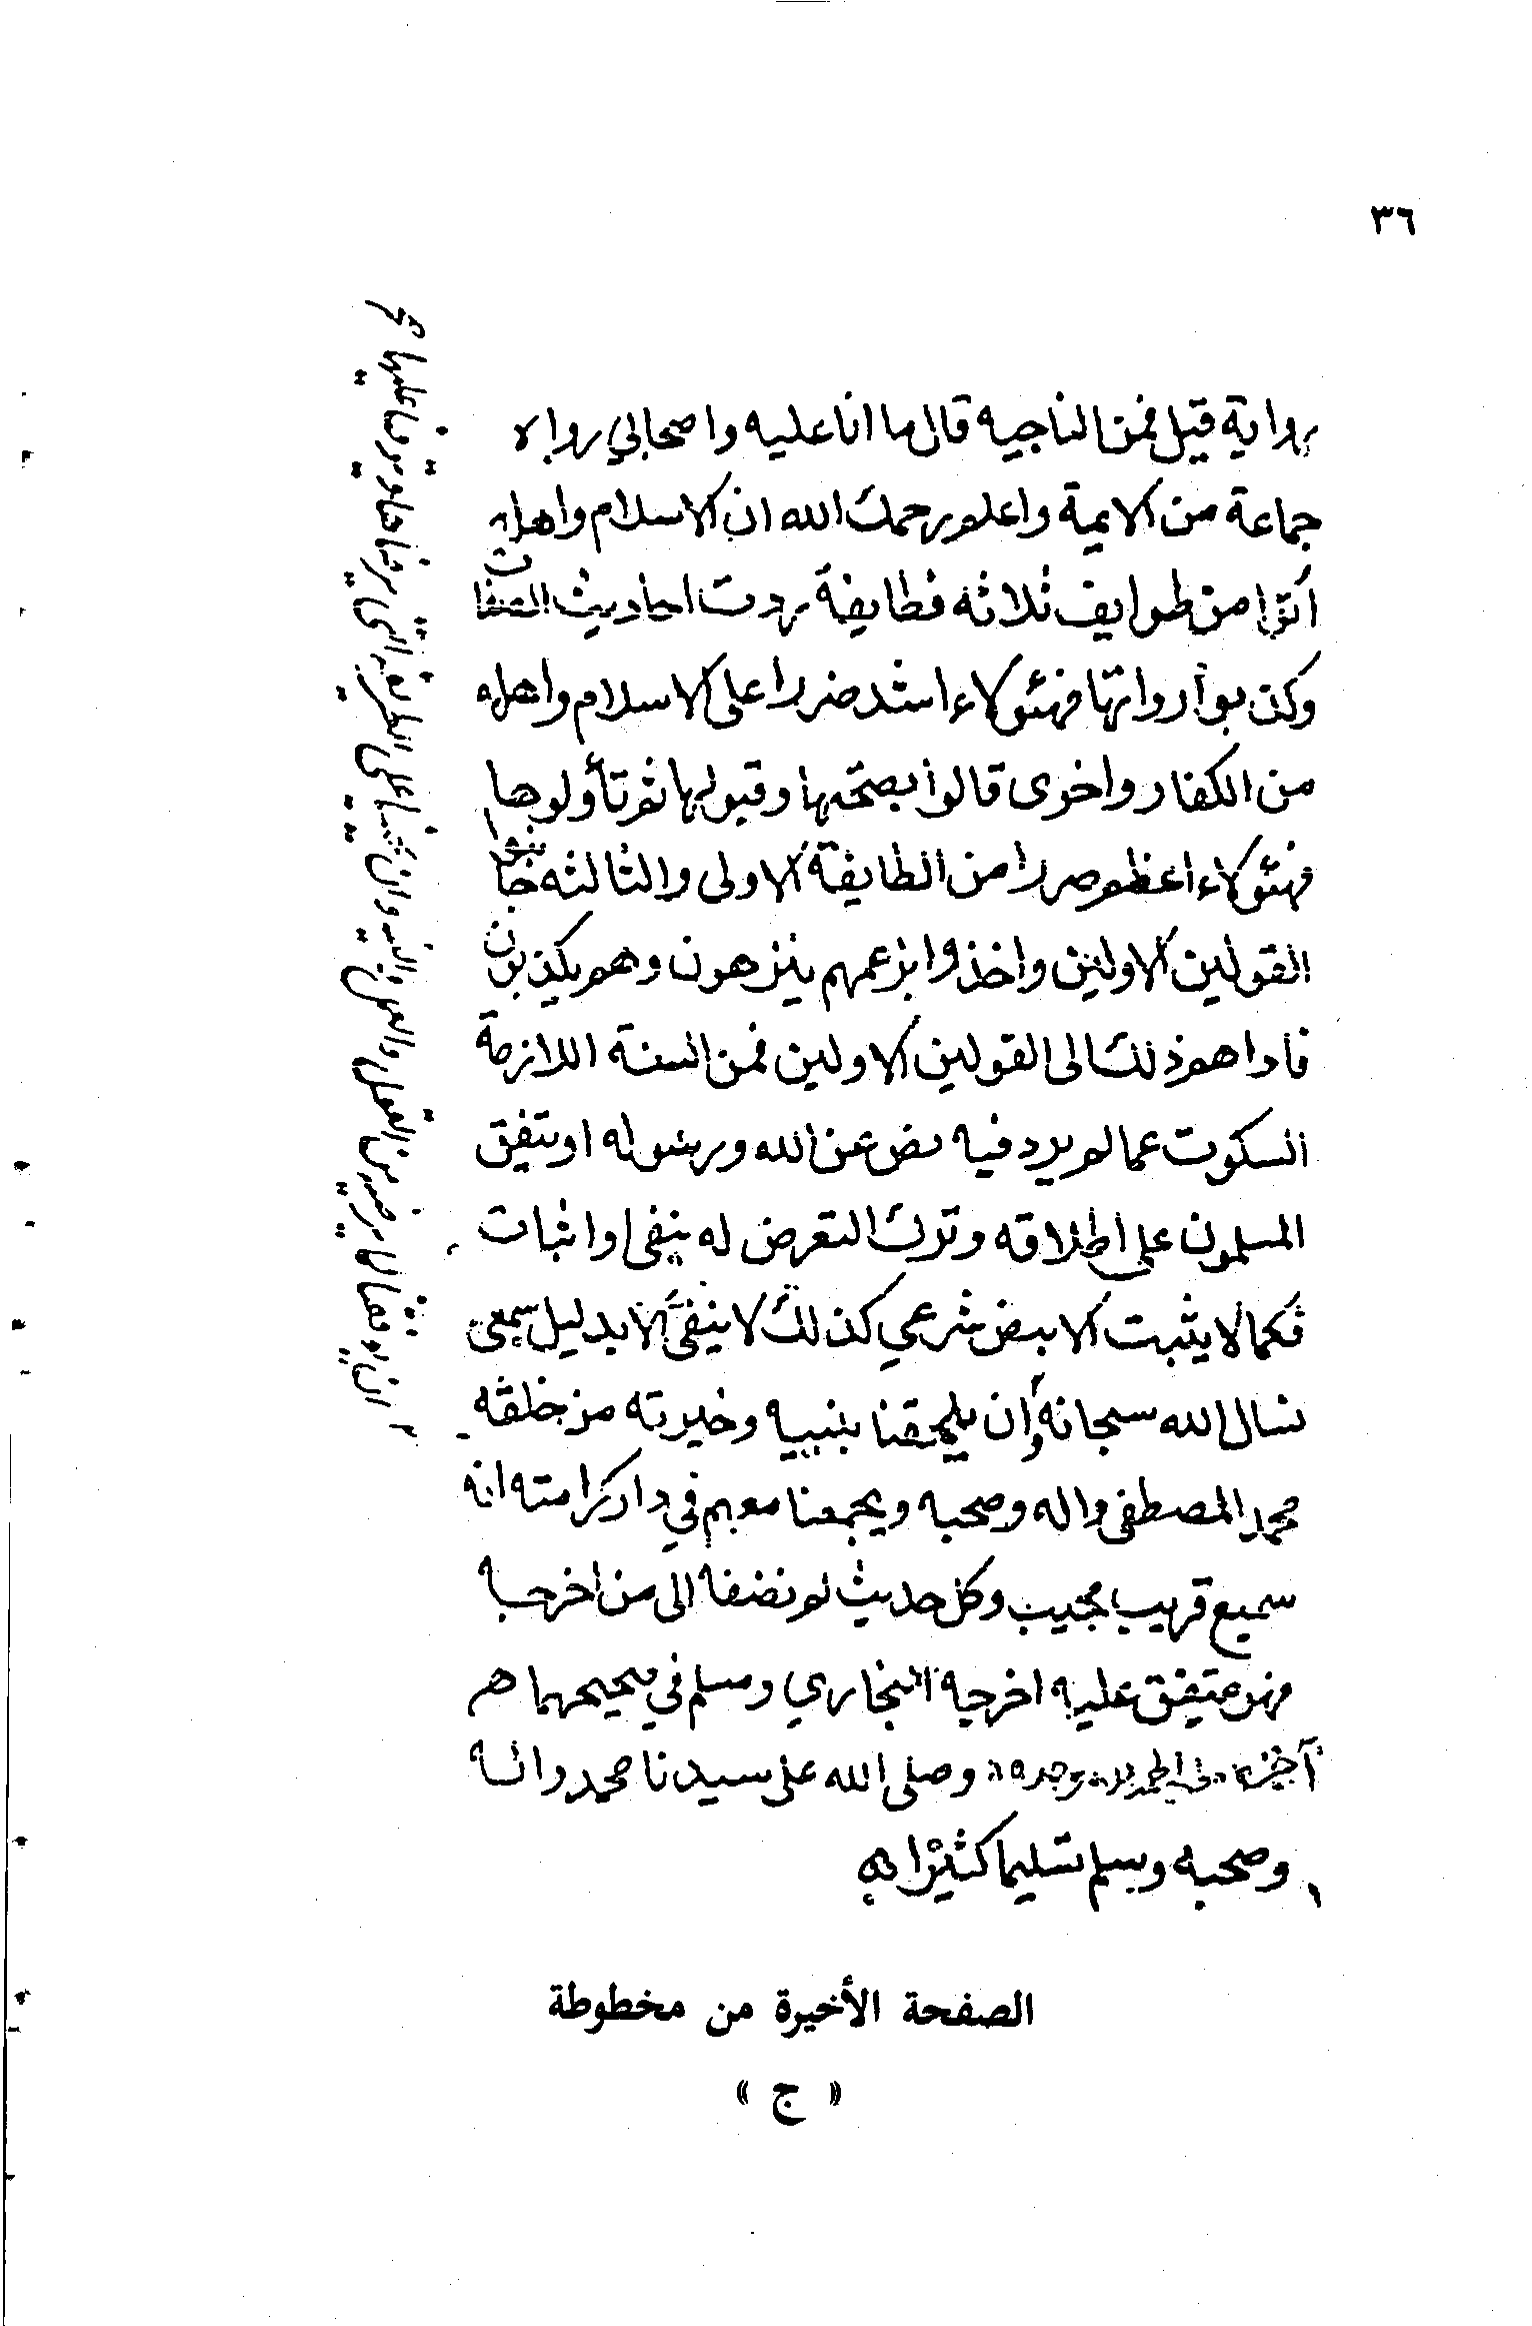 ٣٦
رواية قيل فمن الناجيه قال ما انا عليه واصحابي رواه
جماعة من الايمة واعلم رحمك الله ان الاسلام واهله
أتوا من طوايف ثلاثه فطايفة ردت احاديث الصفات
وكذبوا رواتها فهئولاء اشد ضررا على الاسلام واهله
من الكفار واخرى قالوا بصحتها وقبولها ثم تأولوها
فهئولاء اعظم ضررا من الطايفة الاولى والثالثه جانبوا
القولين الاولين واخذوا بزعمهم ينزهون وهم يكذبون
فاداهم ذلك الى القولين الاولين فمن السنة اللازمة
السكوت عما لم يرد فيه نص عن الله ورسوله او يتفق
المسلمون على اطلاقه وترك التعرض له بنفي او اثبات
فكما لا يثبت الا بنص شرعي كذلك لا ينفى الا بدليل سمعي
نسال الله سبحانه أن يلحقنا بنبيه وخيرته من خلقه
محمد المصطفى واله وصحبه ويجمعنا معهم في دار كرامته انه
سميع قريب مجيب وكل حديث لم نضفه الى من اخرجه
فهو متفق عليه اخرجه البخاري ومسلم في صحيحهما هم
آخره والحمد لله وحده وصلى الله على سيدنا محمد واله
وصحبه وسلم تسليما كثيرا
ان يوفقنا لما يرضيه من القول والعمل والنية وان يحيينا على الطريقة التي يرضاها ويتوفانا عليها
الصفحة الأخيرة من مخطوطة
« ج »